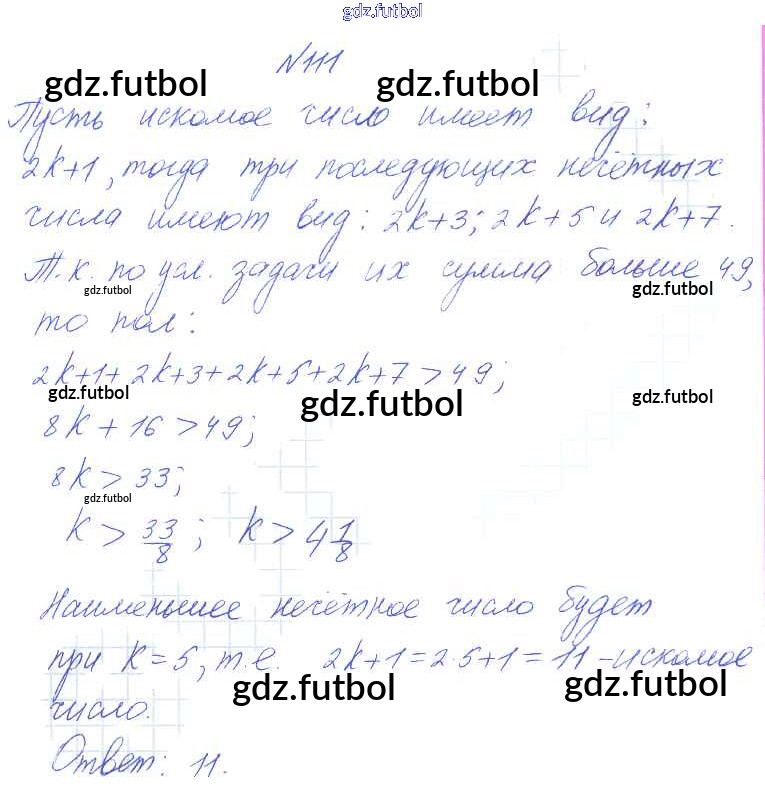 gdz.futbol
№111
gdz.futbol gdz.futbol
Пусть искомое число имеет вид:
2k+1, тогда три последующих нечётных
числа имеют вид: 2k+3; 2k+5 и 2k+7.
Т.к. по усл. задачи их сумма больше 49,
gdz.futbol gdz.futbol
то пол:
2k+1+2k+3+2k+5+2k+7>49;
gdz.futbol gdz.futbol gdz.futbol
8k+16>49;
8k>33;
gdz.futbol
k>33/8; k>4 1/8
Наименьшее нечётное число будет
при k=5, т.е. 2k+1=2·5+1=11-искомое
gdz.futbol gdz.futbol
число.
Ответ: 11.